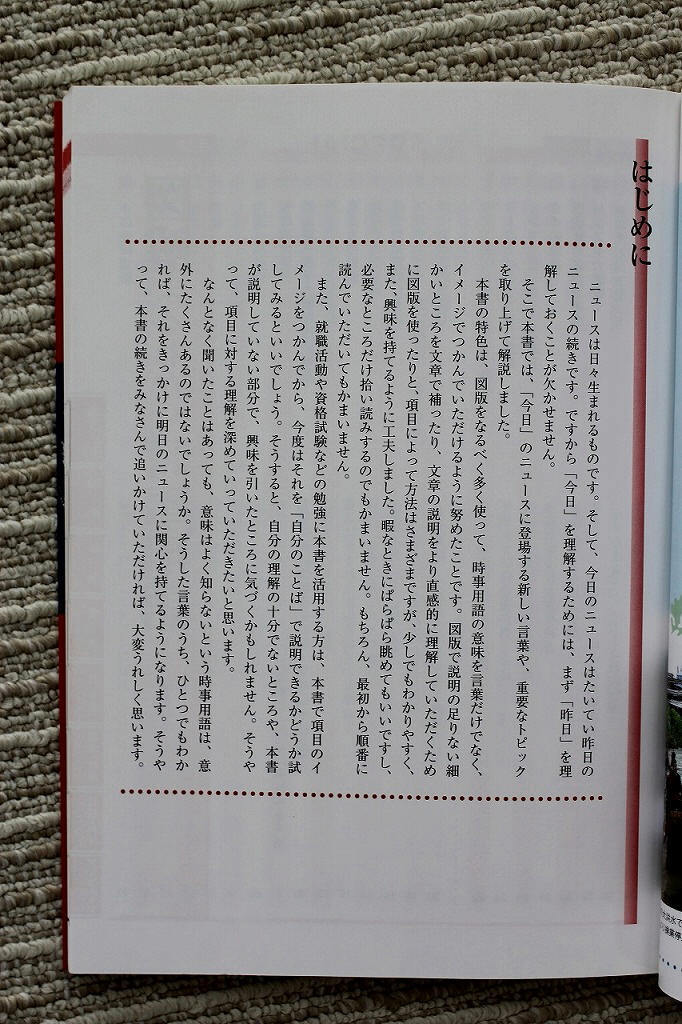 はじめに
ニュースは日々生まれるものです。そして、今日のニュースはたいてい昨日の
ニュースの続きです。ですから「今日」を理解するためには、まず「昨日」を理
解しておくことが欠かせません。
そこで本書では、「今日」のニュースに登場する新しい言葉や、重要なトピック
を取り上げて解説しました。
本書の特色は、図版をなるべく多く使って、時事用語の意味を言葉だけでなく、
イメージでつかんでいただけるように努めたことです。図版で説明の足りない細
かいところを文章で補ったり、文章の説明をより直感的に理解していただくため
に図版を使ったりと、項目によって方法はさまざまですが、少しでもわかりやすく、
また、興味を持てるように工夫しました。暇なときにぱらぱら眺めてもいいですし、
必要なところだけ拾い読みするのでもかまいません。もちろん、最初から順番に
読んでいただいてもかまいません。
また、就職活動や資格試験などの勉強に本書を活用する方は、本書で項目のイ
メージをつかんでから、今度はそれを「自分のことば」で説明できるかどうか試
してみるといいでしょう。そうすると、自分の理解の十分でないところや、本書
が説明していない部分で、興味を引いたところに気づくかもしれません。そうや
って、項目に対する理解を深めていっていただきたいと思います。
なんとなく聞いたことはあっても、意味はよく知らないという時事用語は、意
外にたくさんあるのではないでしょうか。そうした言葉のうち、ひとつでもわか
れば、それをきっかけに明日のニュースに関心を持てるようになります。そうや
って、本書の続きをみなさんで追いかけていただければ、大変うれしく思います。